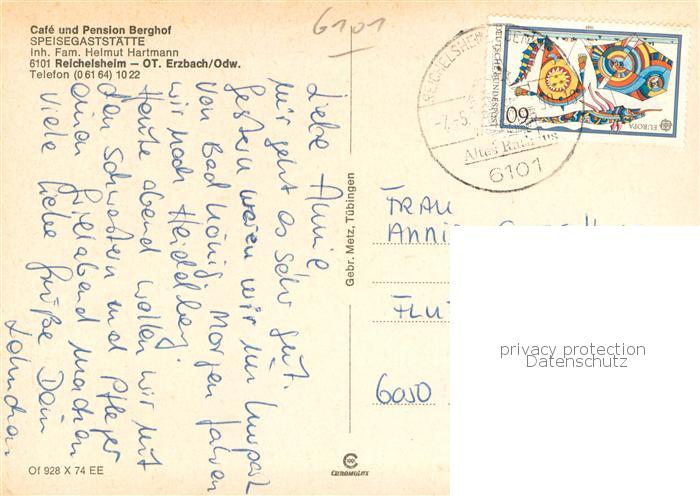 Café und Pension Berghof
SPEISEGASTSTÄTTE
Inh. Fam. Helmut Hartmann
6101 Reichelsheim – OT. Erzbach/Odw.
Telefon (0 61 64) 10 22
6101
Liebe Annie
mir geht es sehr gut.
Gestern waren wir im Kurpark
von Bad König. Morgen fahren
wir nach Heidelberg.
Heute abend wollen wir mit
den Schwestern und Pfleger
einen Grillabend machen
Viele liebe Grüße Dein
Of 928 X 74 EE
Gebr. Metz, Tübingen
CEKOMOLEX
REICHELSHEIM
-7.-5.
Altes Rathaus
6101
DEUTSCHE BUNDESPOST
60
EUROPA
FRAU
6050
privacy protection
Datenschutz